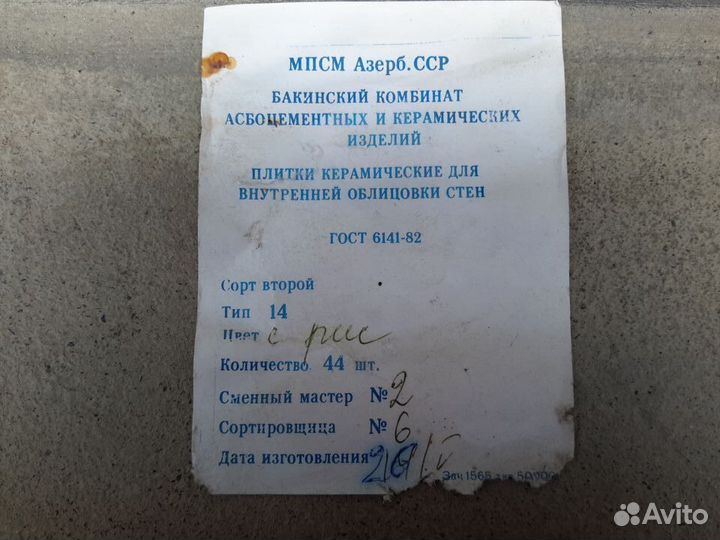 МПСМ Азерб.ССР
БАКИНСКИЙ КОМБИНАТ
АСБОЦЕМЕНТНЫХ И КЕРАМИЧЕСКИХ
ИЗДЕЛИЙ
ПЛИТКИ КЕРАМИЧЕСКИЕ ДЛЯ
ВНУТРЕННЕЙ ОБЛИЦОВКИ СТЕН
ГОСТ 6141-82
Сорт второй
Тип 14
Цвет с рис
Количество 44 шт.
Сменный мастер № 2
Сортировщица № 6
Дата изготовления
Зак 1565
Avito